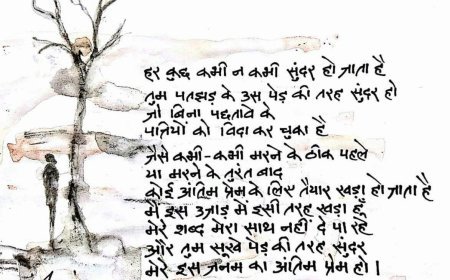 हर कुछ कभी न कभी सुंदर हो जाता है
तुम पतझड़ के उस पेड़ की तरह सुंदर हो
जो बिना पछतावे के
पत्तियों को विदा कर चुका है
जैसे कभी-कभी मरने के ठीक पहले
या मरने के तुरंत बाद
कोई अंतिम प्रेम के लिए तैयार खड़ा हो जाता है
मैं इस उजाड़ में इसी तरह खड़ा हूँ
मेरे शब्द मेरा साथ नहीं दे पा रहे
और तुम सूखे पेड़ की तरह सुंदर
मेरे इस जनम का अंतिम प्रेम हो।